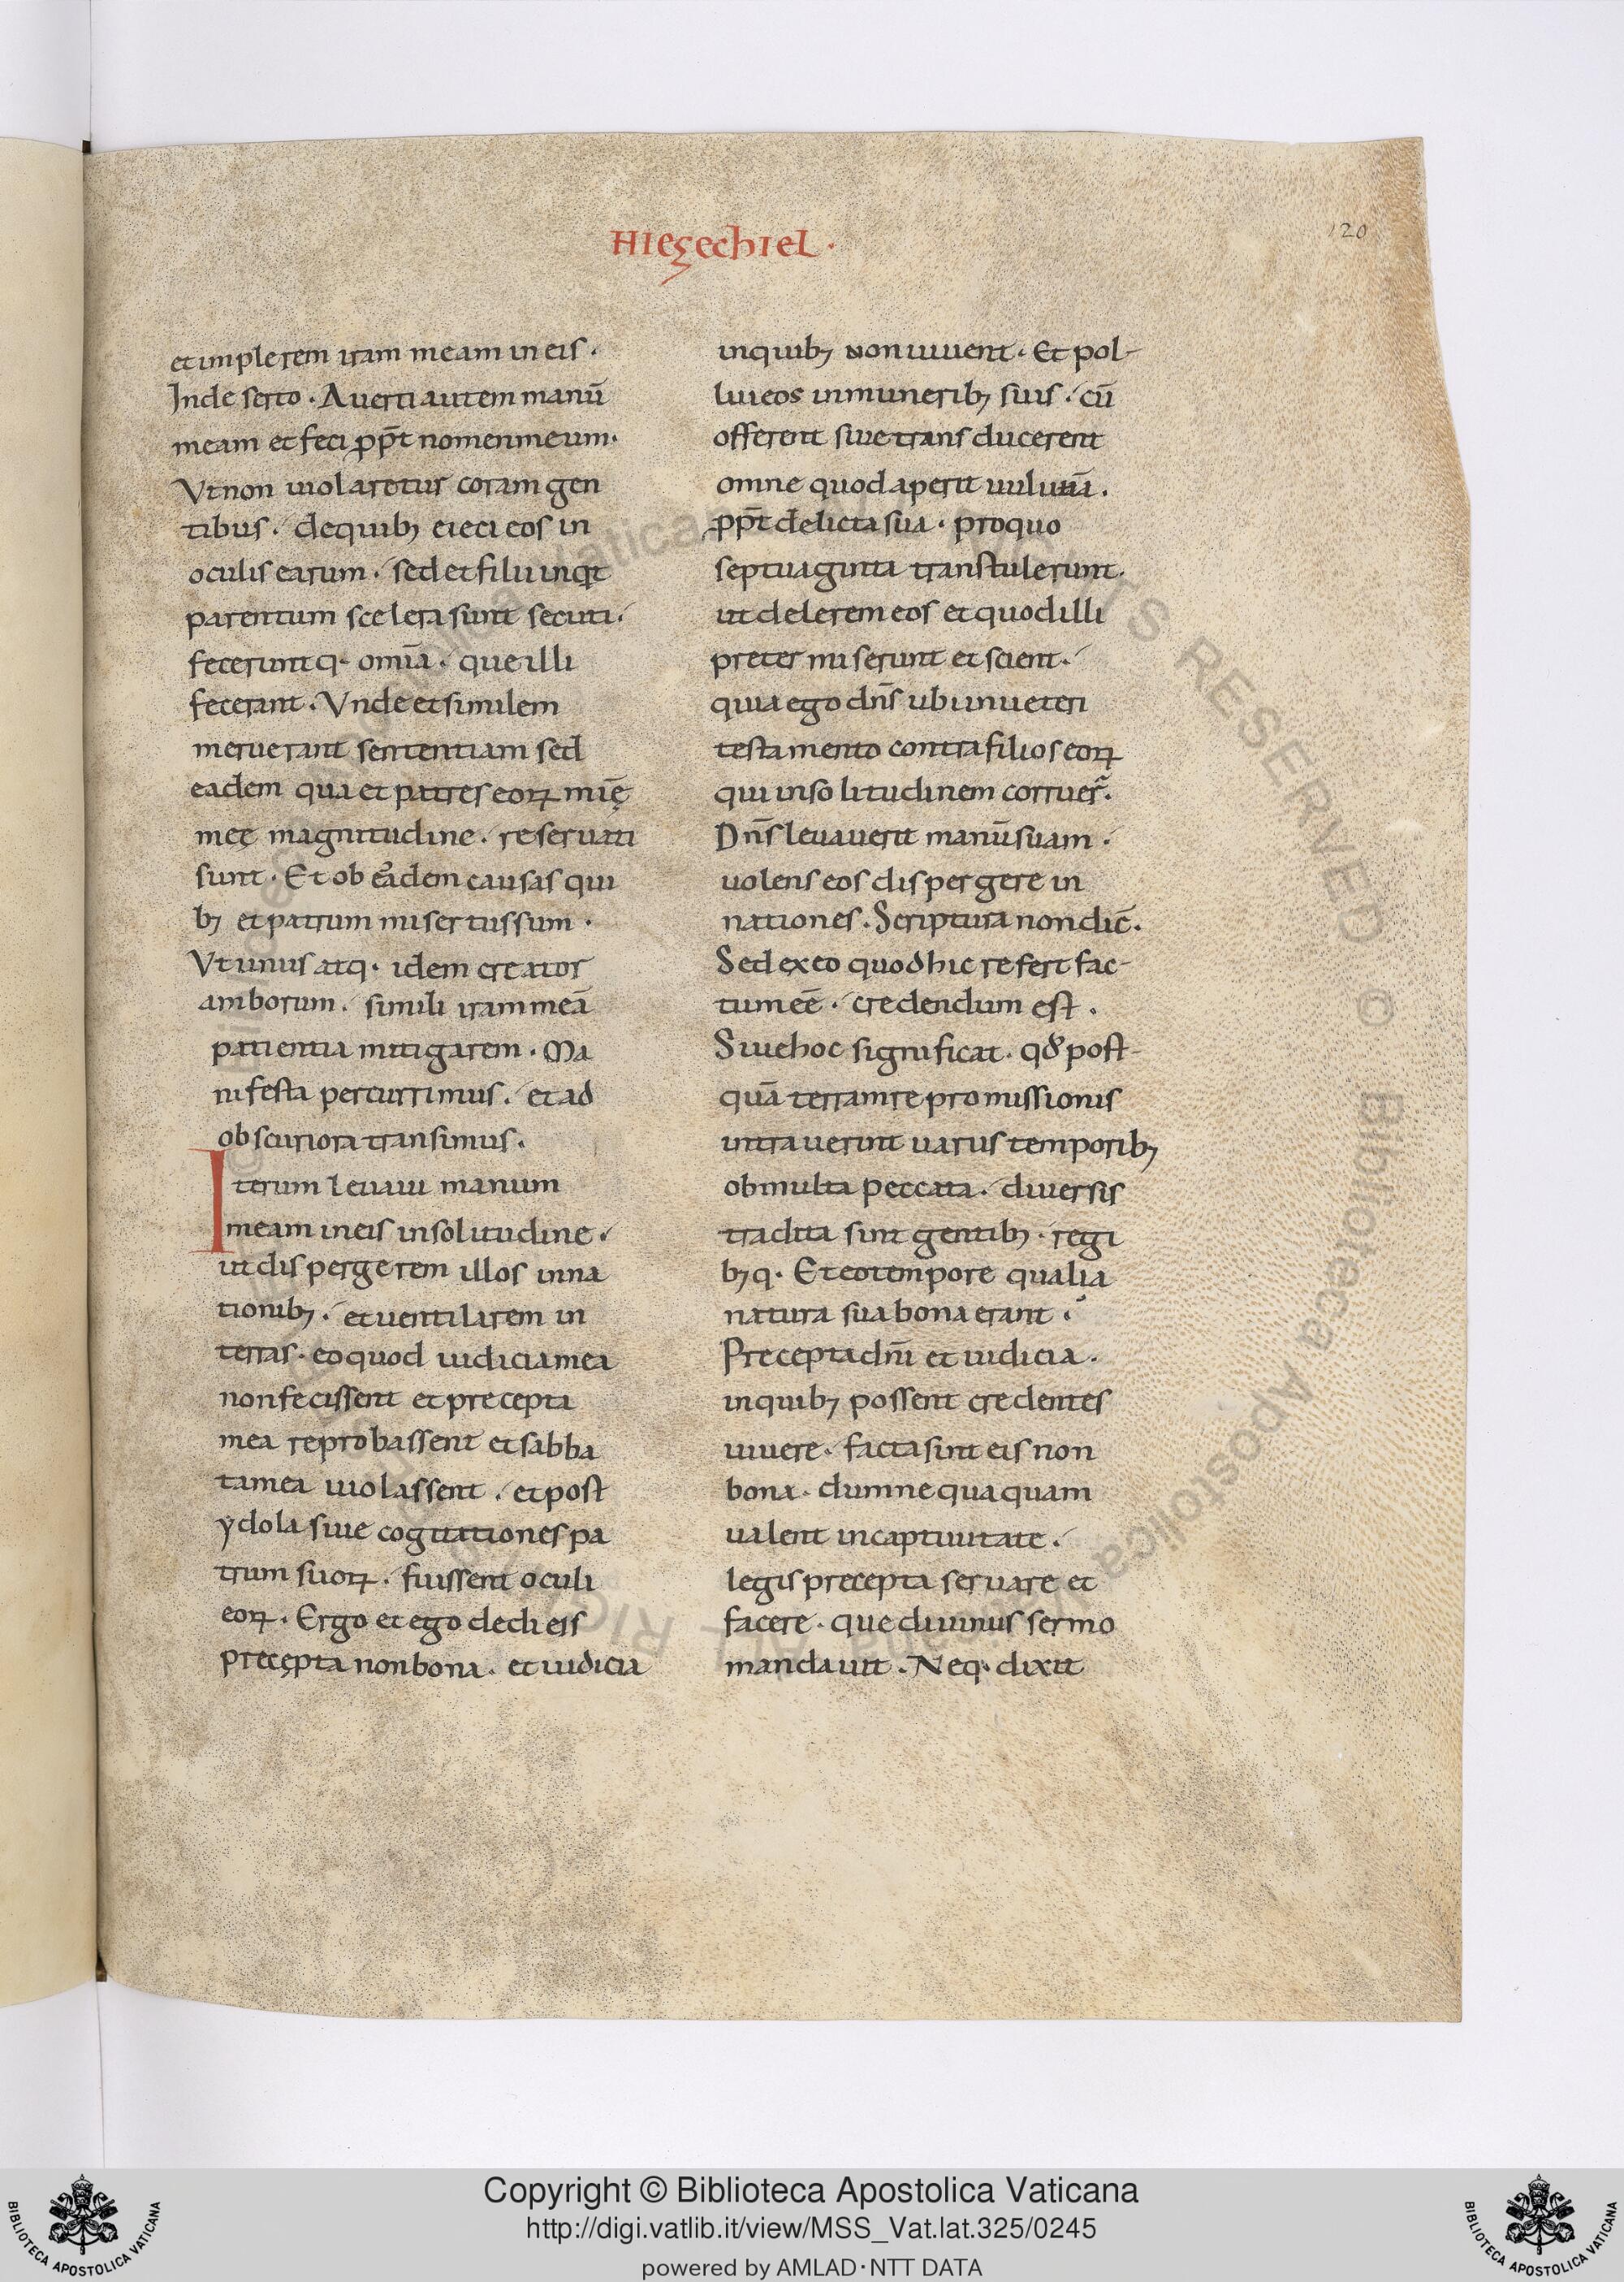 HIEZECHIEL·
120
et implerem iram meam in eis·
In deserto· Averti autem manū
meam et feci ꝓpt̄ nomen meum·
Vt non uiolaretur coram gen
tibus· de quibꝫ eieci eos in
oculis earum· sed et filii inq̄t
parentum scelera sunt secuti·
fecerunt q· om̄ia· que illi
fecerant· Vnde et similem
meruerant sententiam sed
eadem qua et patres eoꝝ mīę
meę magnitudine· reseruati
sunt· Et ob eadem causas qui
bꝫ et patrum misertus sum·
Vt unus atq· idem creator
amborum· simili iram meā
patientia mitigarem· Ma
nifesta percurrimus· et ad
obscuriora transimus·
Iterum leuaui manum
meam in eis in solitudine·
ut dispergerem illos in na
tionibꝫ· et uentilarem in
terras· eo quod iudicia mea
non fecissent et precepta
mea reprobassent et sabba
ta mea uiolassent· et post
ydola siue cogitationes pa
trum suoꝝ· fuissent oculi
eoꝝ· Ergo et ego dedi eis
precępta non bona· et iudicia
in quibꝫ non uiuent· Et pol-
lui eos in muneribꝫ suis· cū
offerent siue transducerent
omne quod aperit uuluā·
ꝓpt̄ delicta sua· pro quo
septuaginta transtulerunt·
ut delerem eos et quod illi
preter miserunt et scient·
quia ego dn̄s ubi in ueteri
testamento contra filios eoꝝ
qui in solitudinem corruer̄·
Dn̄s leuauerit manū suam·
uolens eos dispergere in
nationes· Scriptura non dic̄·
Sed ex eo quod hic refert fac-
tum eē· credendum est·
Siue hoc significat· qđ post-
quā terram repromissionis
intrauerint uariis temporibꝫ
ob multa peccata· diuersis
tradita sint gentibꝫ· regi
bꝫq· Et eo tempore qualia
natura sua bona erant·
Precepta dn̄i et iudicia·
in quibꝫ possent credentes
uiuere· facta sint eis non
bona· dum nequaquam
ualent in captiuitate·
legis precepta seruare et
facere· que diuinus sermo
mandauit· Neq· dixit
Copyright © Biblioteca Apostolica Vaticana
http://digi.vatlib.it/view/MSS_Vat.lat.325/0245
powered by AMLAD·NTT DATA
BIBLIOTECA APOSTOLICA VATICANA
BIBLIOTECA APOSTOLICA VATICANA